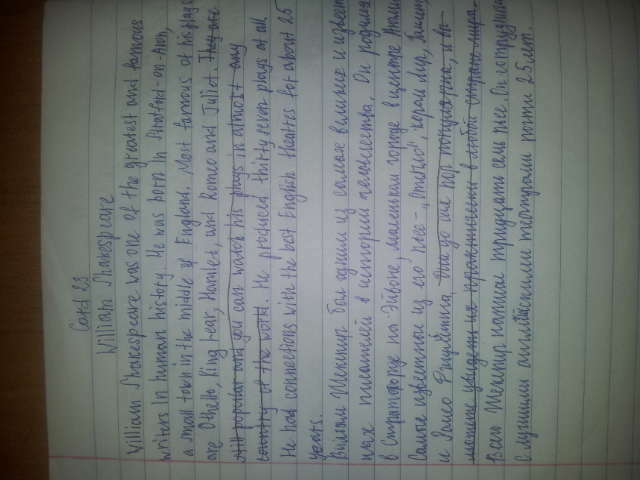 Card 23
William Shakespeare
William Shakespeare was one of the greatest and famous
writers in human history. He was born in Stratford-on-Avon,
a small town in the middle of England. Most famous of his plays
are Othello, King Lear, Hamlet, and Romeo and Juliet. They are
still popular and you can watch his plays in almost any
country of the world. He produced thirty seven plays at all.
He had connections with the best English theatres for about 25
years.
Вильям Шекспир был одним из самых великих и извест
ных писателей в истории человечества. Он родился
в Стратфорде на Эйвоне, маленьком городе в центре Англии
Самые известные из его пьес - "Отелло", король Лир, Гамлет,
и Ромео Джульетта. Они до сих пор популярны, и вы
можете увидеть их практически в любой стране мира.
Всего Шекспир написал тридцать семь пьес. Он сотруднич
с лучшими английскими театрами почти 25 лет.